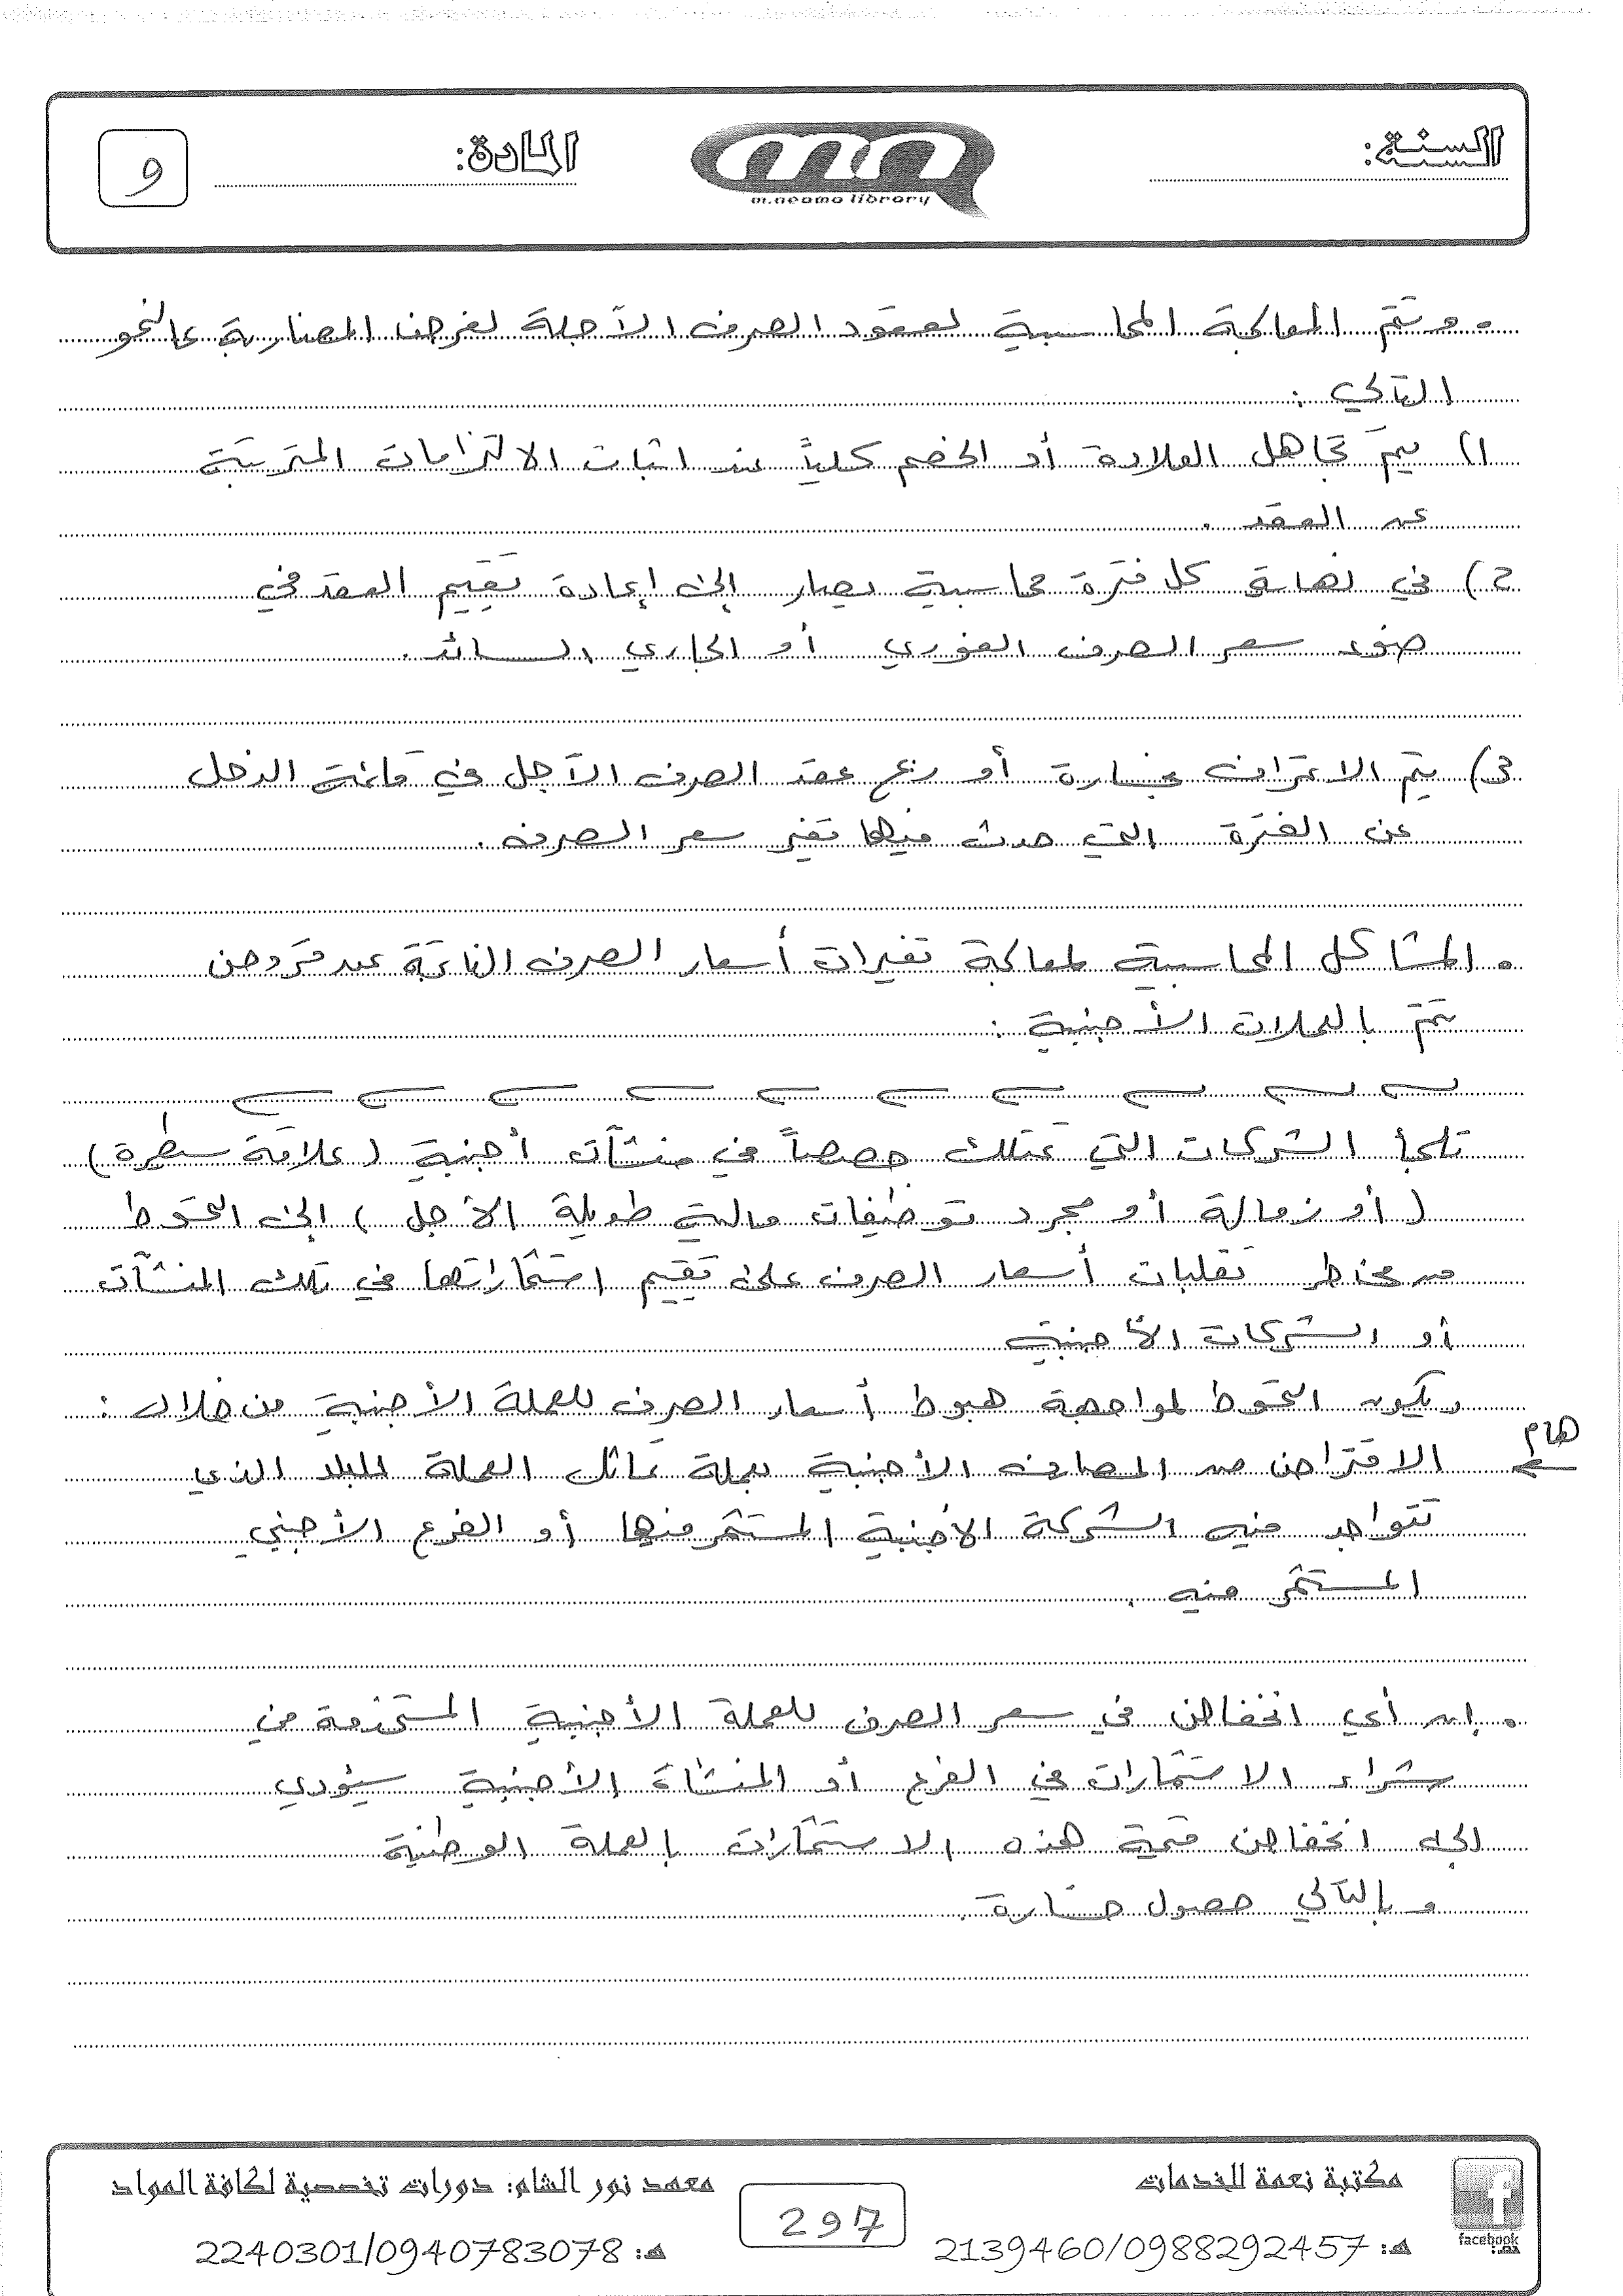 السنة:
m.neama library
المادة:
و
. وتتم المعالجة المحاسبية لعقود الصرف الآجلة لغرض المضاربة عالنحو
التالي :
1) يتم تجاهل العلاوة أو الخصم كلياً عند اثبات الالتزامات المترتبة
عن العقد .
2) في نهاية كل فترة محاسبية يصار إلى إعادة تقييم العقد في
ضوء سعر الصرف الفوري أو الجاري السائد .
3) يتم الاعتراف بخسارة أو ربح عقد الصرف الآجل في قائمة الدخل
عن الفترة التي حدث فيها تغير سعر الصرف .
. المشاكل المحاسبية لمعالجة تغيرات أسعار الصرف الناتجة عن قروض
تتم بالعملات الأجنبية :
تلجأ الشركات التي تمتلك حصصاً في منشآت أجنبية (علاقة سيطرة)
( أو زمالة أو مجرد توظيفات مالية طويلة الأجل ) إلى التحوط
من مخاطر تقلبات أسعار الصرف على تقييم استثماراتها في تلك المنشآت
أو الشركات الأجنبية
ويكون التحوط لمواجهة هبوط أسعار الصرف للعملة الأجنبية من خلال :
هام
الاقتراض من المصارف الأجنبية بعملة تماثل العملة للبلد الذي
تتواجد فيه الشركة الأجنبية المستثمر فيها أو الفرع الأجنبي
المستثمر فيه .
. إن أي انخفاض في سعر الصرف للعملة الأجنبية المستخدمة في
شراء الاستثمارات في الفرع أو المنشأة الأجنبية سيؤدي
إلى انخفاض قيمة هذه الاستثمارات بالعملة الوطنية
وبالتالي حصول خسارة .
facebook
مكتبة نعمة للخدمات
هـ: 2139460/0988292457
297
معهد نور الشام: دورات تخصصية لكافة المواد
هـ: 2240301/0940783078